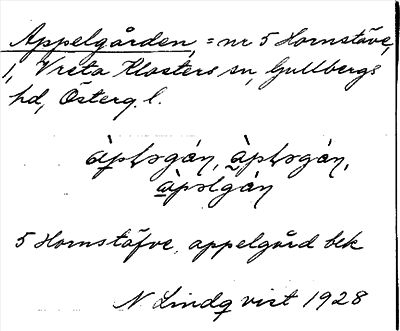 Appelgården, = nr 5 Hornstäve,
1, Vreta Klosters sn, Gullbergs
hd, Österg. l.
àpḷəgán, àpḷəgán,
àpəlgán
5 Hornstäfve, appelgård bek
N Lindqvist 1928